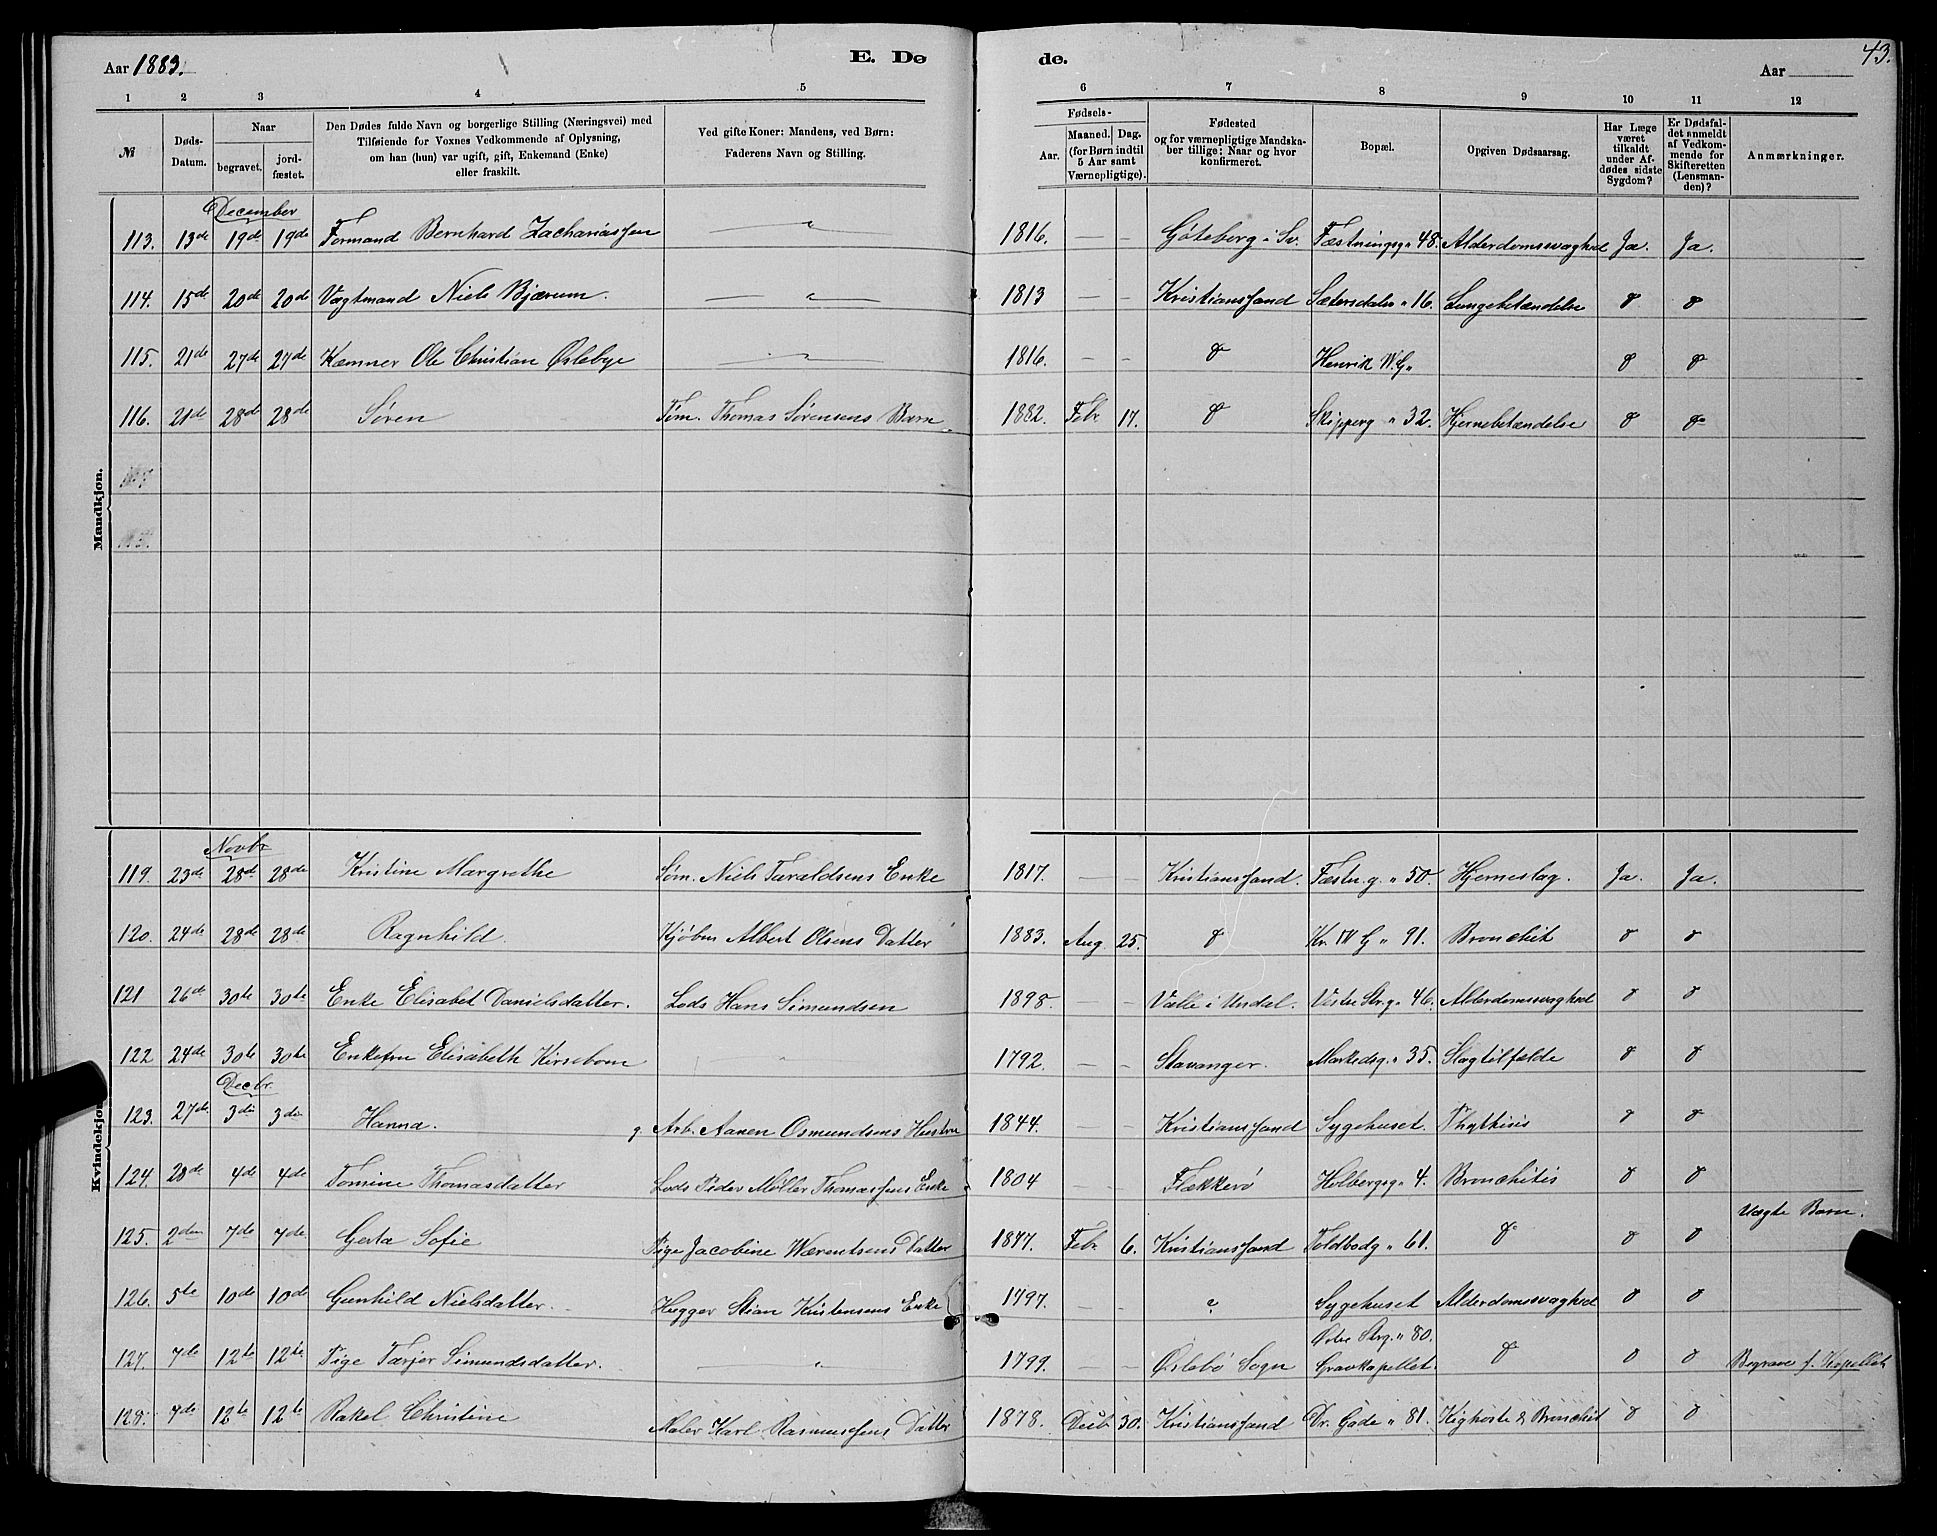 Aar 1883. E. Dø
de. Aar 43.
1 2 3 4 5 6 7 8 9 10 11 12
№ Døds-Datum. Naar begravet. jord-fæstet. Den Dødes fulde Navn og borgerlige Stilling (Næringsvei) med Tilføiende for Voxnes Vedkommende af Oplysning, om han (hun) var ugift, gift, Enkemand (Enke) eller fraskilt. Ved gifte Koner: Mandens, ved Børn: Faderens Navn og Stilling. Fødsels- Aar. Maaned. Dag. (for Børn indtil 5 Aar samt Værnepligtige). Fødested og for værnepligtige Mandskaber tillige: Naar og hvor konfirmeret. Bopæl. Opgiven Dødsaarsag. Har Læge været tilkaldt under Afdødes sidste Sygdom? Er Dødsfaldet anmeldt af Vedkommende for Skifteretten (Lensmanden)? Anmærkninger.
Mandkjøn.
December
113. 13de 19de 19de Formand Bernhard Zachariassen — " — 1816. — — Gøteborg i Sv. Fæstningsg " 48. Alderdomssvaghed Ja. Ja.
114. 15de 20de 20de Vægtmand Niels Bjærum. — " — 1813 — — Kristianssand Sætersdalsv " 16. Lungebetændelse do do
115. 21de 27de 27de Kæmner Ole Christian Øslebye — " — 1816. — — do Henrik W. G " do do
116. 21de 28de 28de Søren Tøm. Thomas Sørensens Barn. 1882. Febr 17. do Skipperg " 32. Hjernebetændelse do do
Kvindekjøn.
Novbr
119. 23de 28de 28de Kristine Margrethe Søm. Niels Taraldsens Enke 1817. — — Kristianssand. Fæstn. g. " 50. Hjerneslag. Ja. Ja.
120. 24de 28de 28de Ragnhild. Kjøbm Albert Olsens Datter 1883. Aug 25. do Kr. IV G " 91. Bronchit do do
121 26de 30te 30te Enke Elisabet Danielsdatter. Lods Hans Simundsen 1898. — — Valle i Undal. Vestre Str.g " 46. Alderdomssvaghed do do
122 24de 30te 30te Enkefru Elisabeth Kirsebom " 1792. — — Stavanger. Markedsg. " 35. Slagtilfælde do do
Decbr.
123. 27de 3die 3die Hanna. g. Arb. Aanen Osmundsens Hustru 1844. — — Kristianssand Sygehuset. Phythisis do do
124. 28de 4de 4de Tomine Thomasdatter Lods Peder Møller Thomassens Enke 1804 — — Flækkerø Holbergsg " 4. Bronchitis do do
125. 2den 7de 7de. Gerta Sofie Pige Jacobine Wærentsens Datter 1877. Febr 6. Kristianssand Toldbodg " 61. do do do Uægte Barn.
126. 5te 10de 10de Gunhild Nielsdatter. Hugger Stian Kristensens Enke 1797. — — " Sygehuset Alderdomssvaghed do do
127. 7de 12te 12te Pige Tærjer Simundsdatter. — " 1799. — — Øslebø Sogn Østre Strg. " 80. Gravkapellet. do do do Begrave f. Kapellet
128. 7de 12te 12te Rakel Christine Maler Karl Rasmussens Datter 1878. Decb 30. Kristianssand Dr. Gade " 81. Kighoste & Bronchit do do